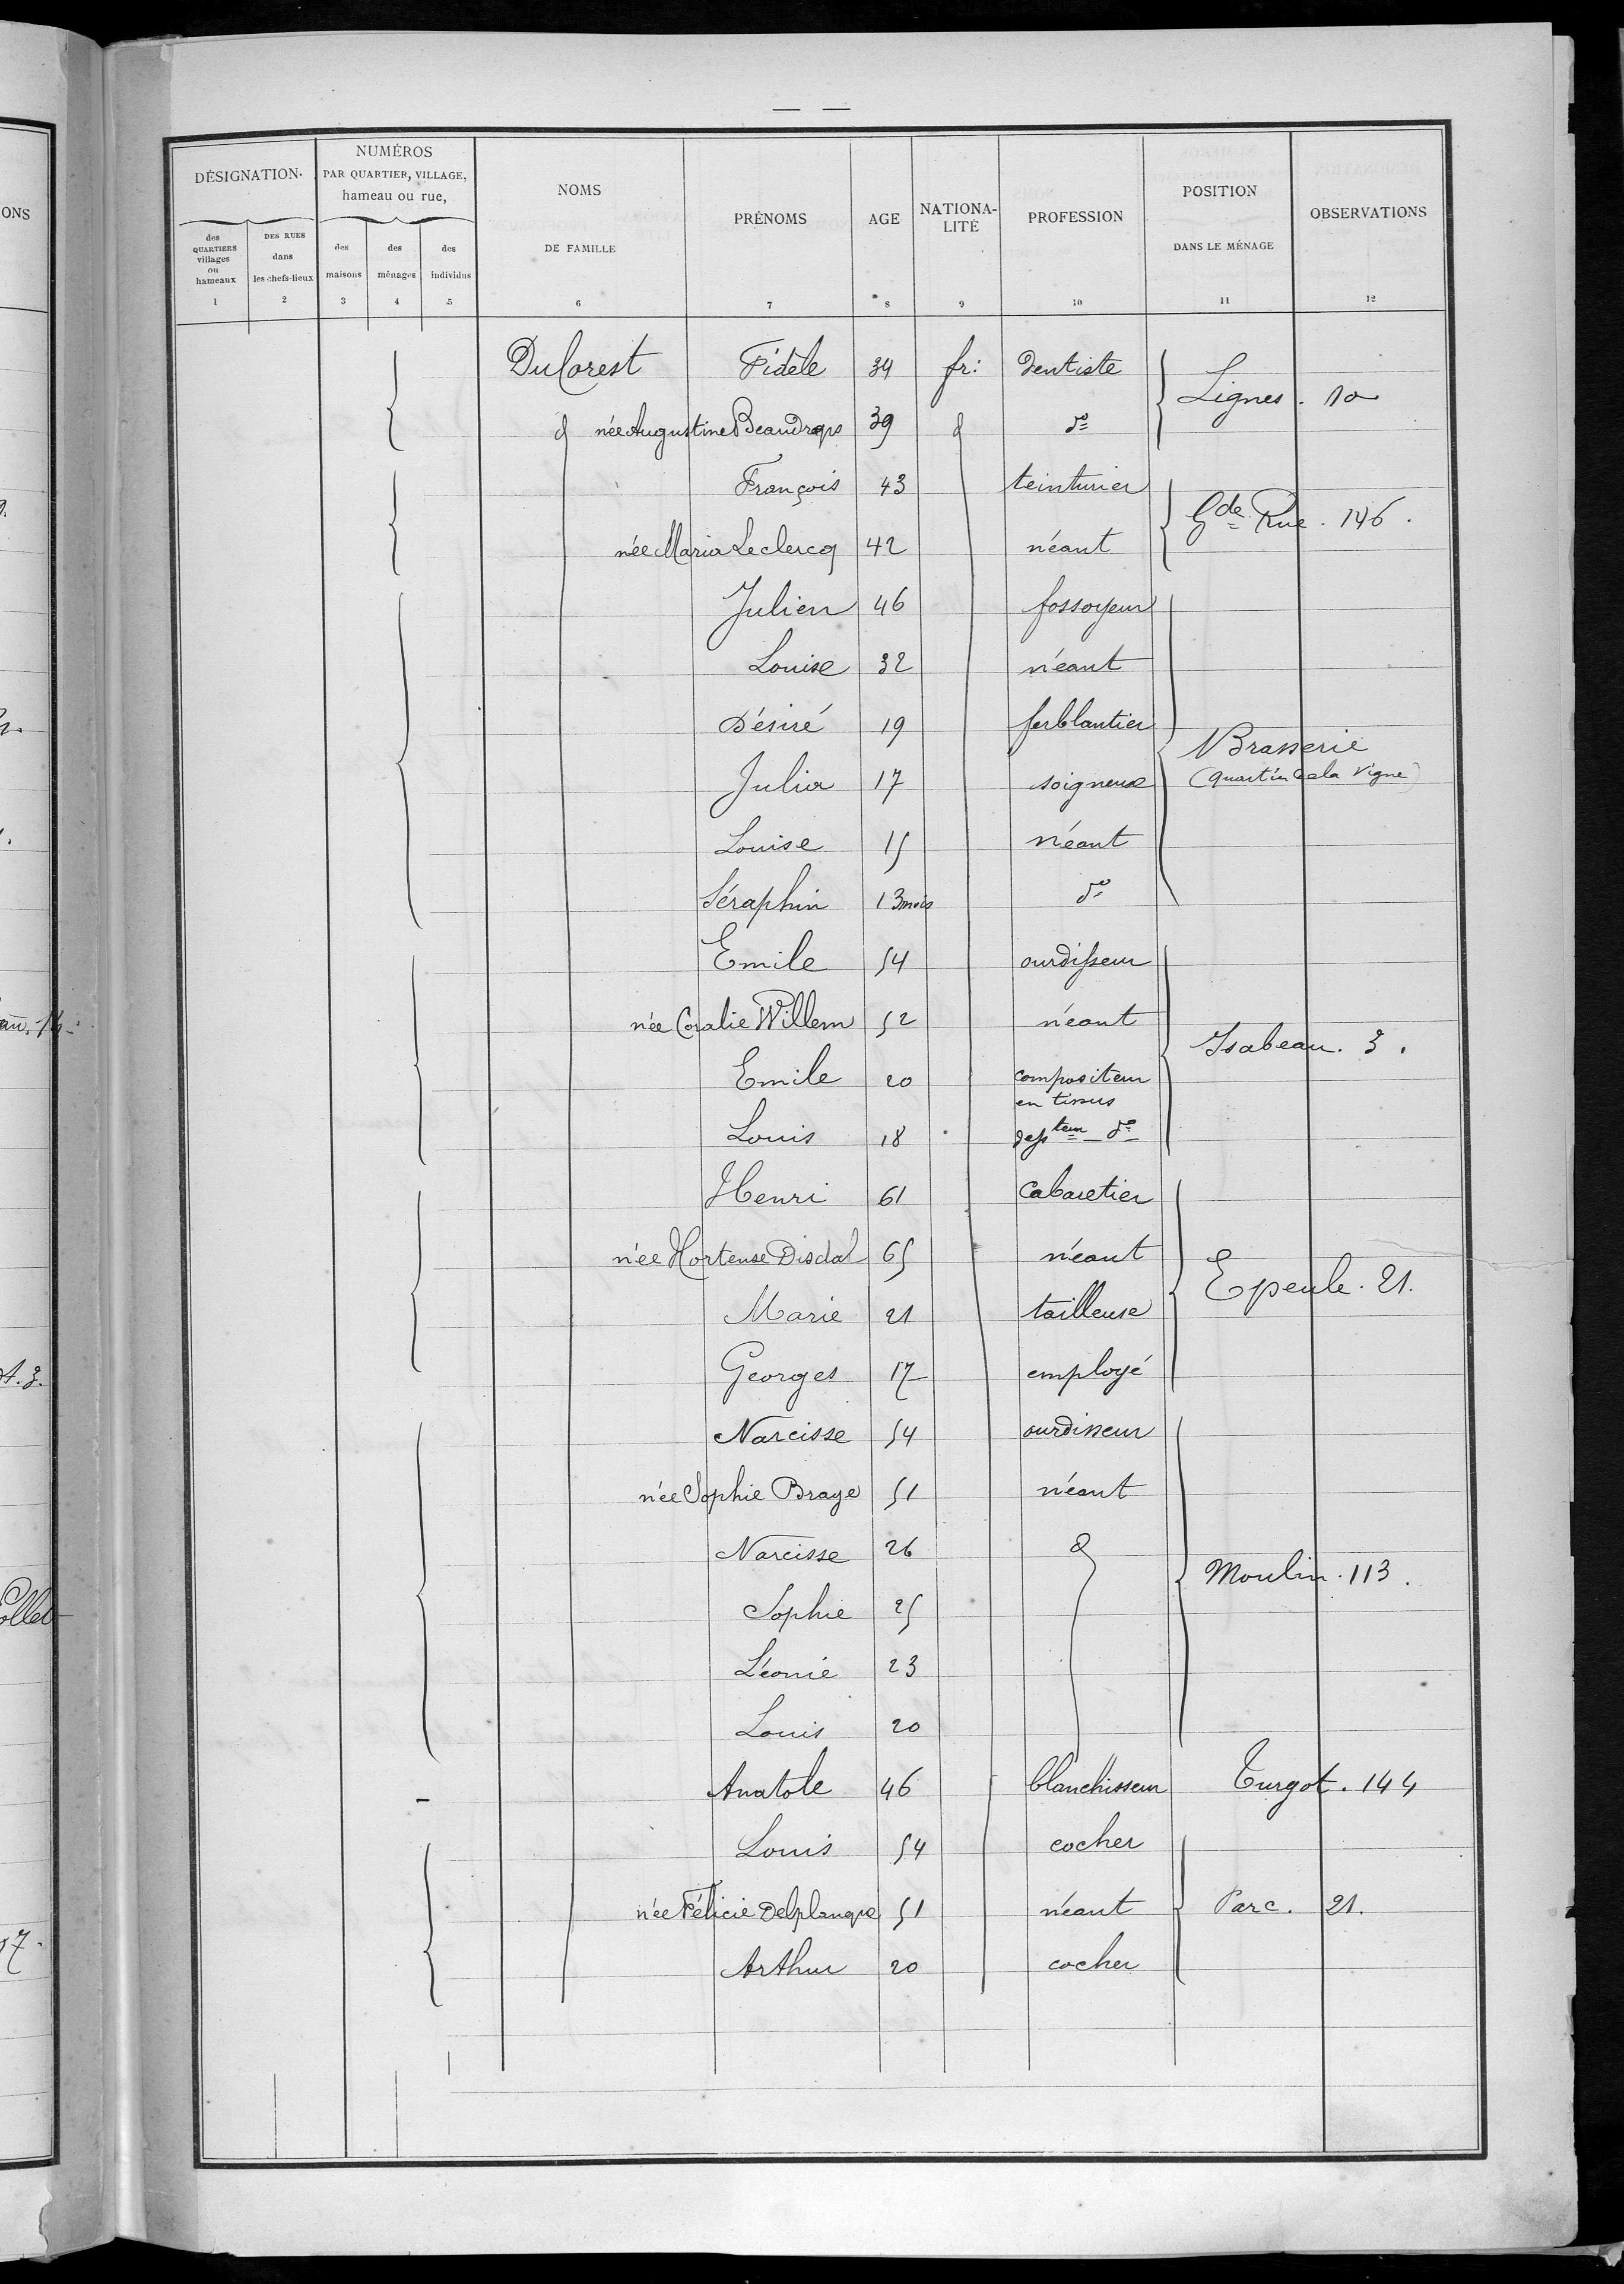 — —
DÉSIGNATION·
NUMÉROS
PAR QUARTIER, VILLAGE,
hameau ou rue,
NOMS
DE FAMILLE
PRÉNOMS
AGE
NATIONA-
LITÉ
PROFESSION
POSITION
DANS LE MÉNAGE
OBSERVATIONS
des
QUARTIERS
villages
ou
hameaux
DES RUES
dans
les chefs-lieux
des
maisons
des
ménages
des
individus
1 2 3 4 5 6 7 8 9 10 11 12
Duforest Fidèle 34 fr: dentiste
Lignes. 10
d née Augustine Beaudreps 39 d do
François 43 teinturier
Gde Rue. 146.
née Maria Leclercq 42 néant
Julien 46 fossoyeur
Louise 32 néant
Désiré 19 ferblantier
Brasserie
Julia 17 soigneuse (quartier de la Vigne)
Louise 15 néant
Séraphin 13 mois do
Emile 54 ourdisseur
née Coralie Willem 52 néant
Isabeau. 3.
Emile 20 compositeur
en tissus
Louis 18 dessteur do
Henri 61 Cabaretier
née Hortense Disdal 65 néant
Epeule. 21.
Marie 21 tailleuse
Georges 17 employé
Narcisse 54 ourdisseur
née Sophie Braye 51 néant
Narcisse 26 d
Moulin. 113.
Sophie 25
Léonie 23
Louis 20
Anatole 46 blanchisseur Turgot. 144
Louis 54 cocher
née Félicie Delplanque 51 néant Parc. 21.
Arthur 20 cocher
ONS